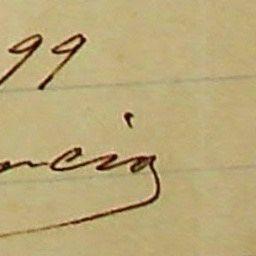 99
ncia